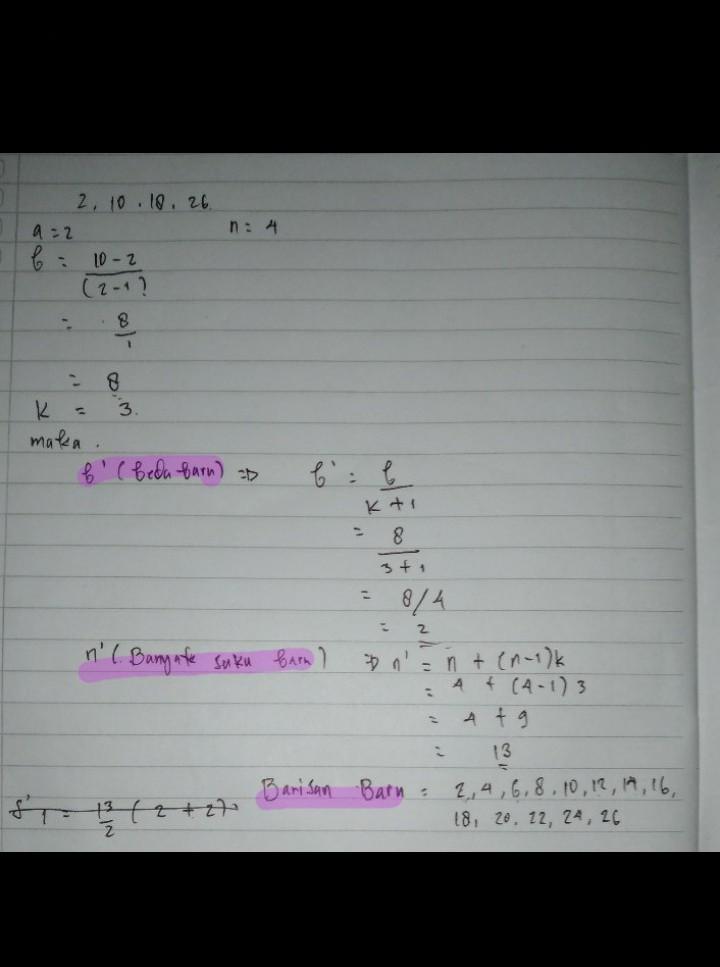 2, 10, 18, 26.
a = 2 n = 4
b = 10 - 2
(2 - 1)
= 8
1
= 8
K = 3.
maka.
b' (beda baru) => b' = b
K + 1
= 8
3 + 1
= 8/4
= 2
n' (Banyak suku baru) => n' = n + (n-1)k
= 4 + (4-1) 3
= 4 + 9
= 13
S'1 = 13 (2 + 2).
2
Barisan Baru = 2, 4, 6, 8, 10, 12, 14, 16,
18, 20, 22, 24, 26